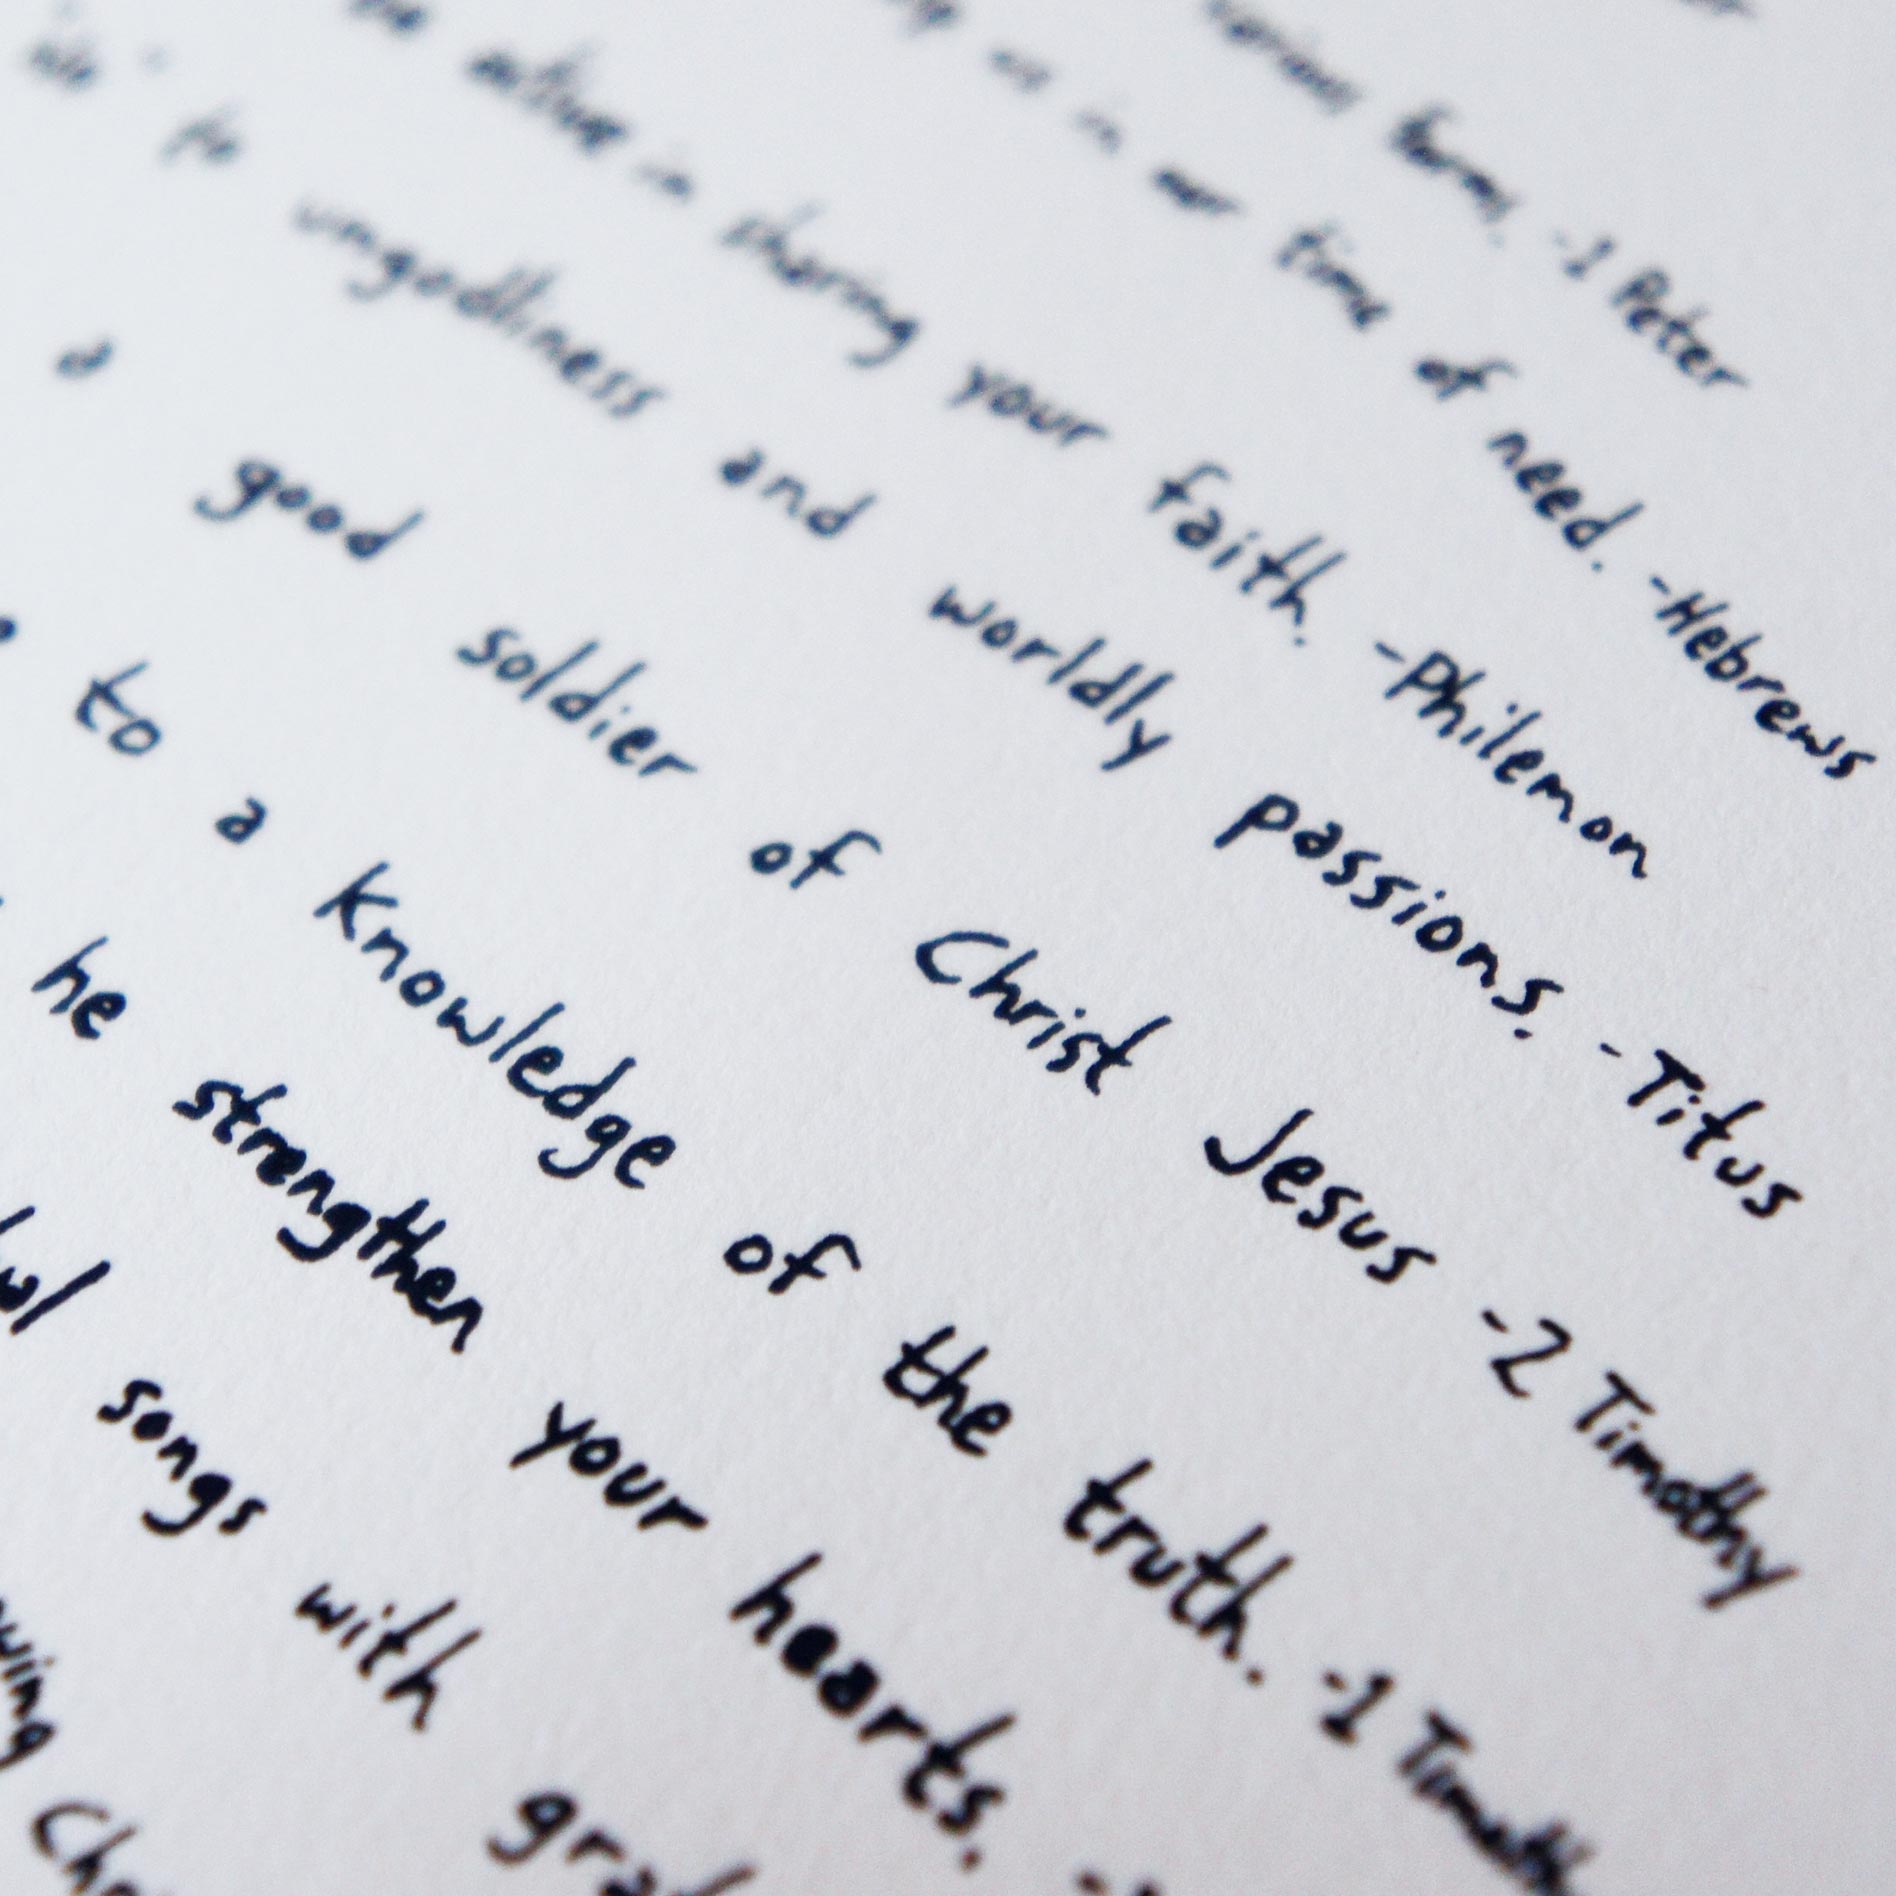 various forms. -1 Peter
us in our time of need. -Hebrews
be active in sharing your faith. -Philemon
to ungodliness and worldly passions. -Titus
a good soldier of Christ Jesus -2 Timothy
to a knowledge of the truth. -1 Timoth
he strengthen your hearts. -1
songs with grat
wing Chr